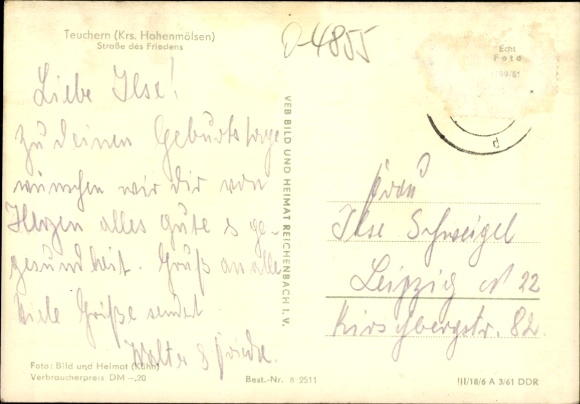 Teuchern (Krs. Hohenmölsen)
Straße des Friedens
D-4855
Echt
Foto
Liebe Ilse!
Zu deinen Geburtstage
wünschen wir Dir von
Herzen alles gute & ge-
gesundheit. Gruß an alle
viele Grüße sendet
Walter & Friedel.
VEB BILD UND HEIMAT REICHENBACH I. V.
Frau
Ilse Schweigel
Leipzig N 22
Kirschbergstr. 82.
Foto: Bild und Heimat (Kühn)
Verbraucherpreis DM -,20
Best.-Nr. 8 2511
III/18/6 A 3/61 DDR